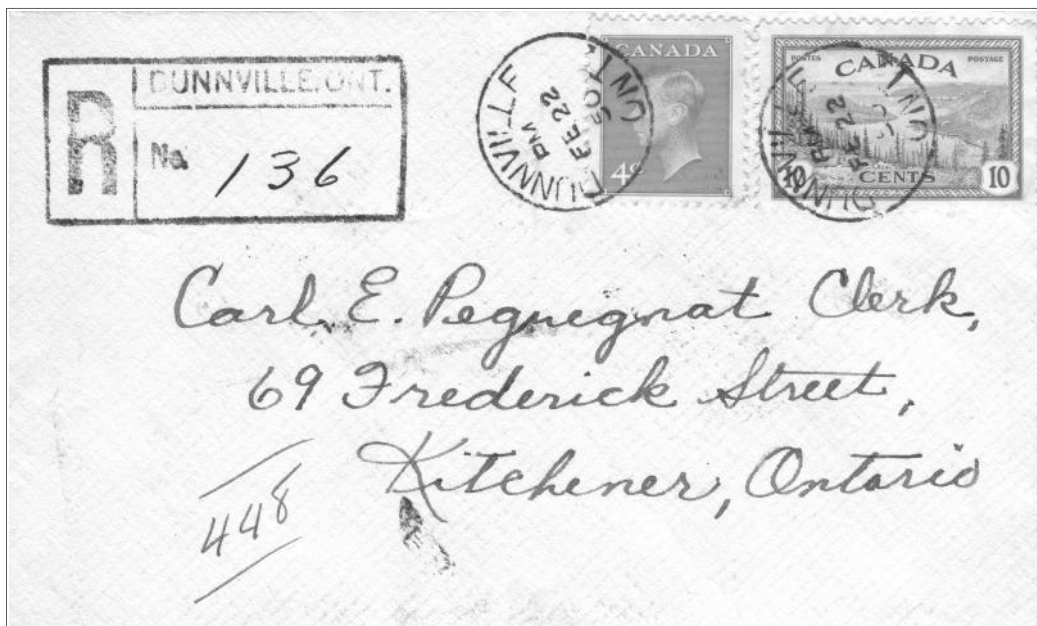 R
DUNNVILLE, ONT.
No. 136
DUNNVILLE ONT
PM
FE 22
50
CANADA
4c
DUNNVILLE ONT
PM
FE 22
POSTES POSTAGE
CANADA
10 CENTS 10
Carl. E. Peguegnat Clerk,
69 Frederick Street,
Kitchener, Ontario
448